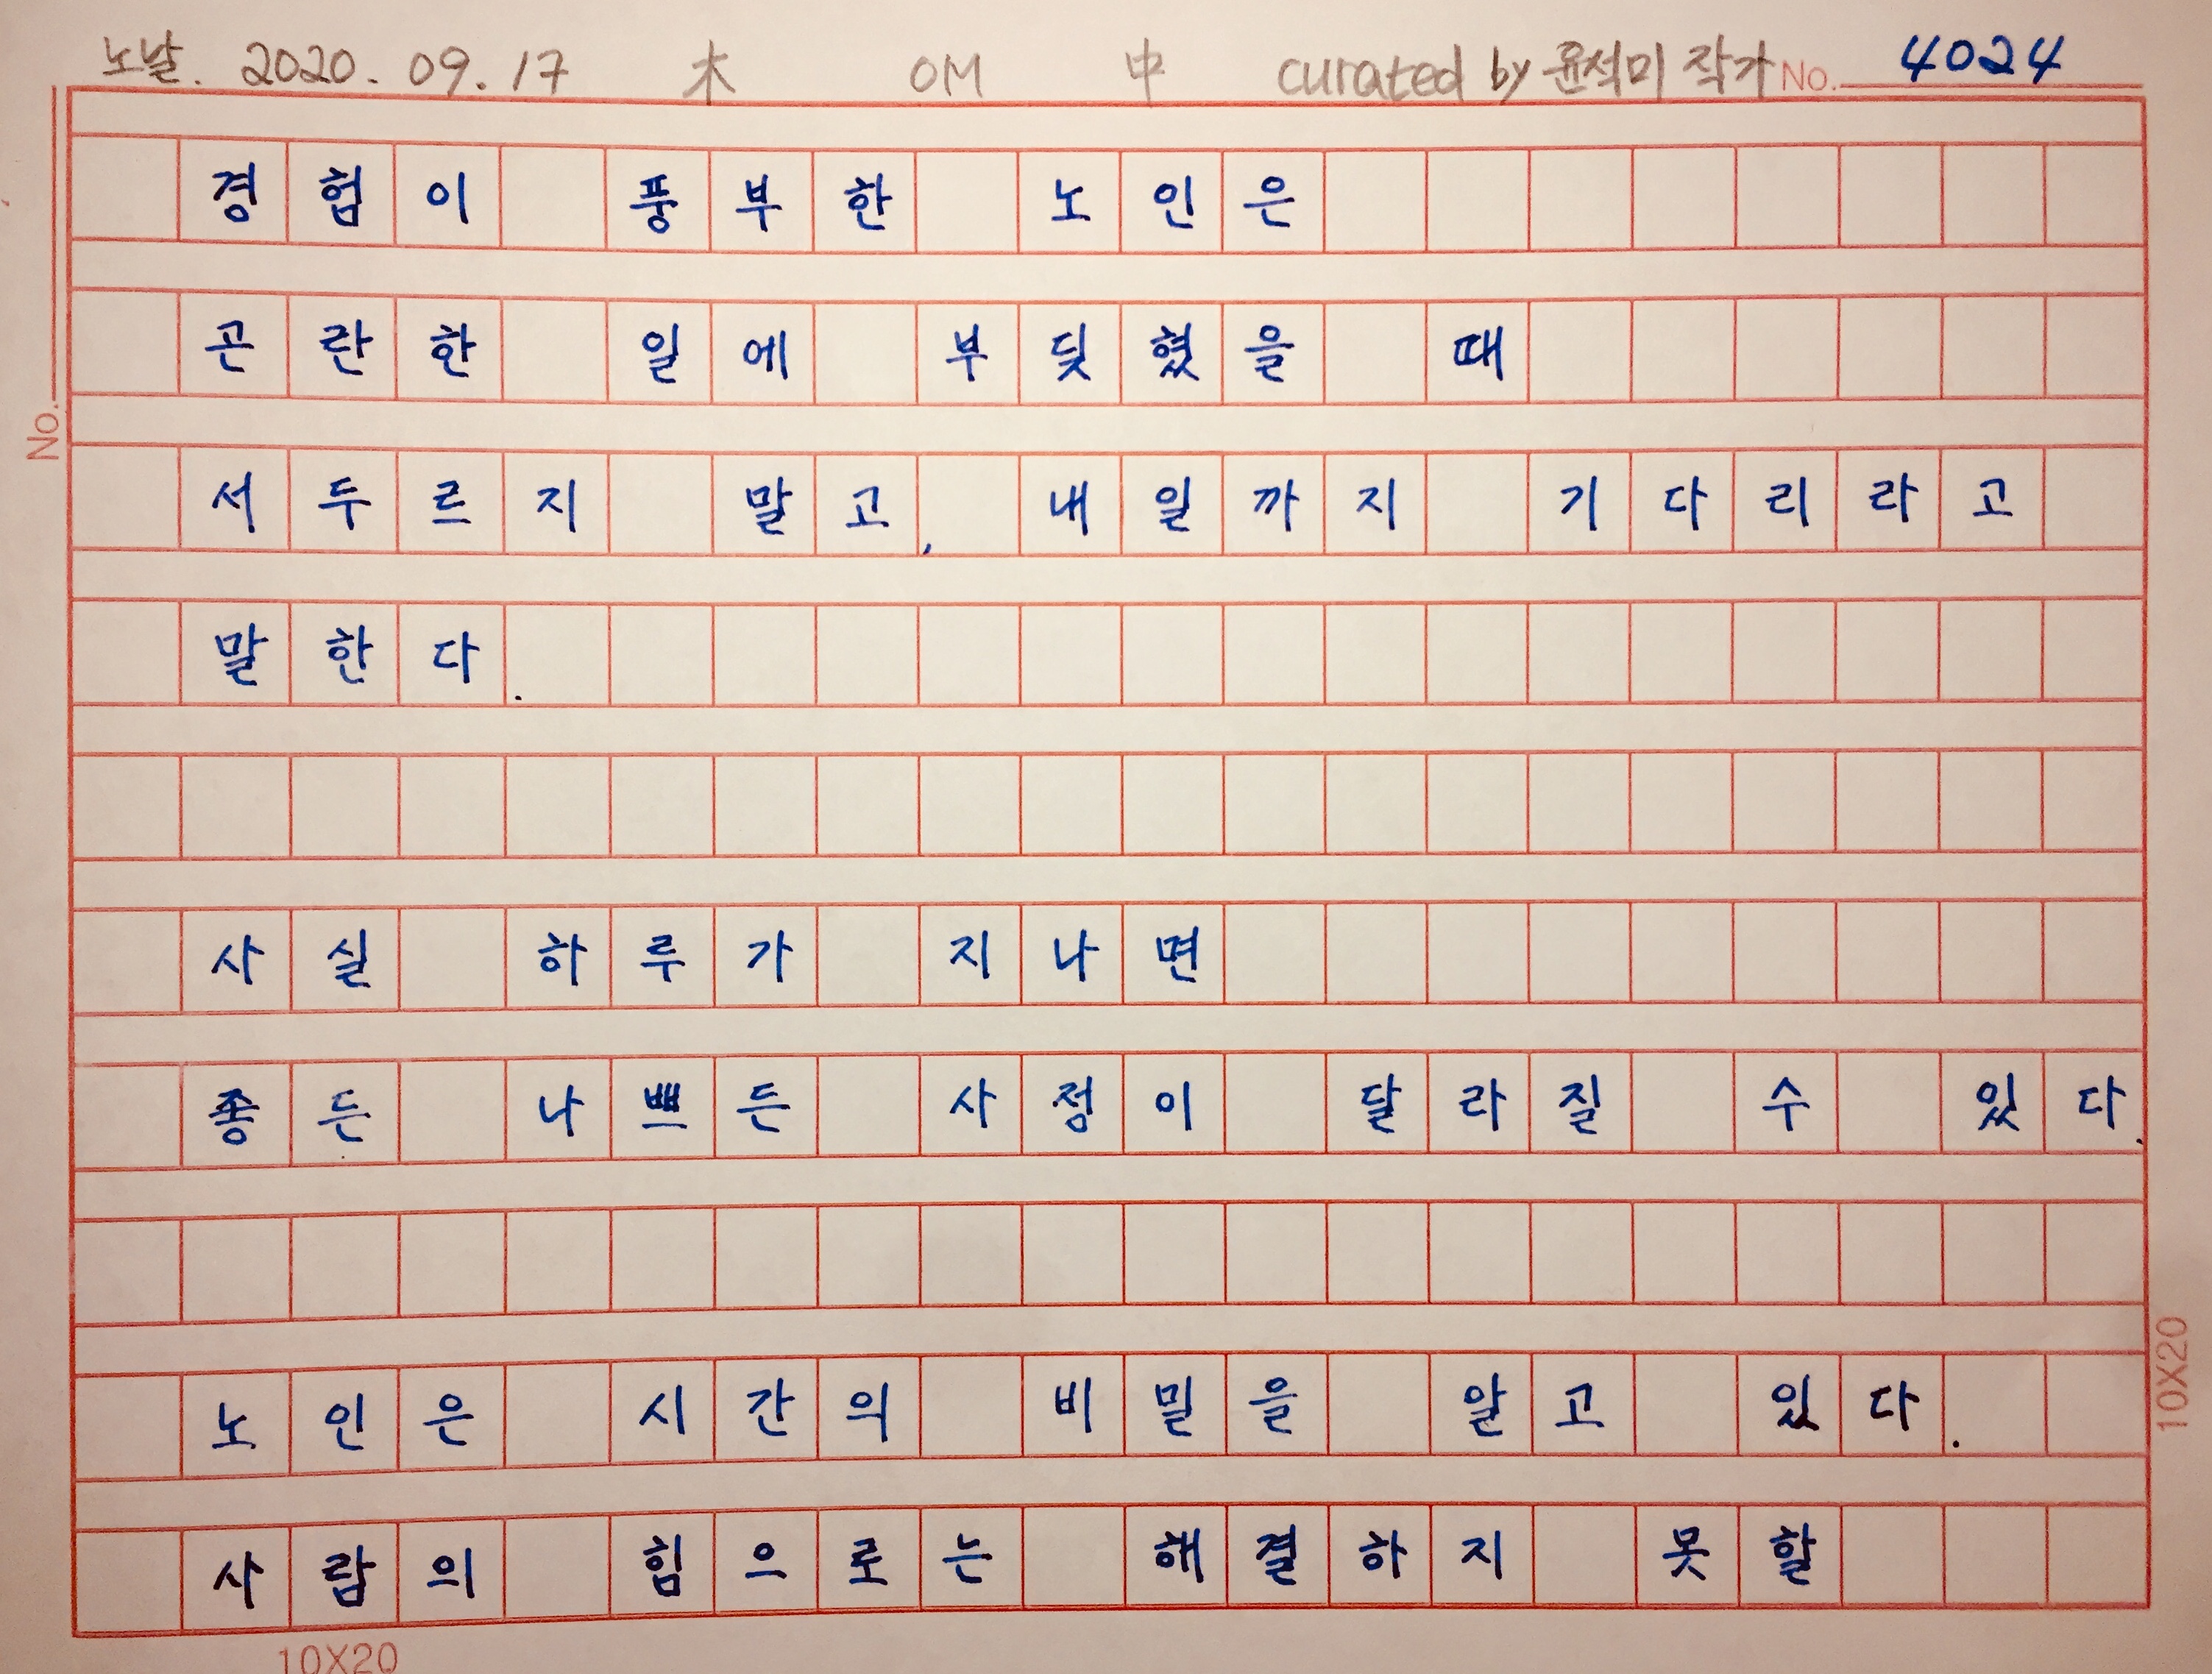 노날. 2020. 09. 17 木 OM 中 curated by 윤석미 작가 No. 4024
경험이 풍부한 노인은
곤란한 일에 부딪혔을 때
No.
서두르지 말고, 내일까지 기다리라고
말한다.
사실 하루가 지나면
좋든 나쁘든 사정이 달라질 수 있다.
노인은 시간의 비밀을 알고 있다.
10X20
사람의 힘으로는 해결하지 못할
10X20